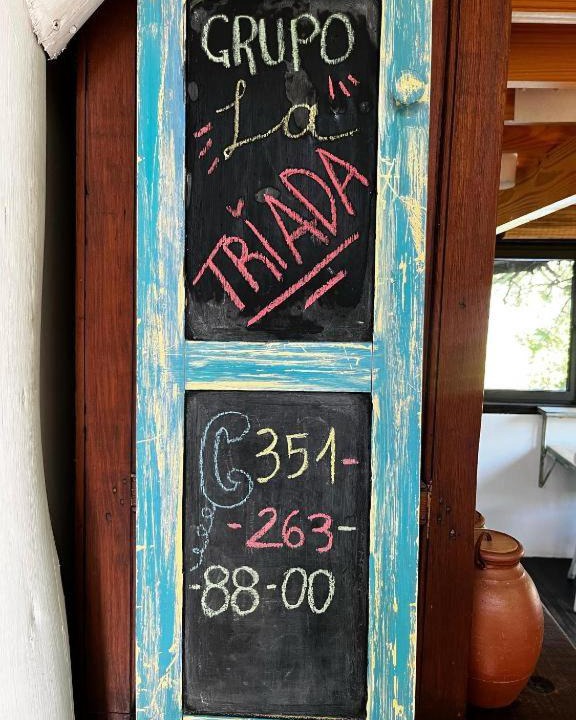 GRUPO
La
TRIADA
351-
-263-
-88-00